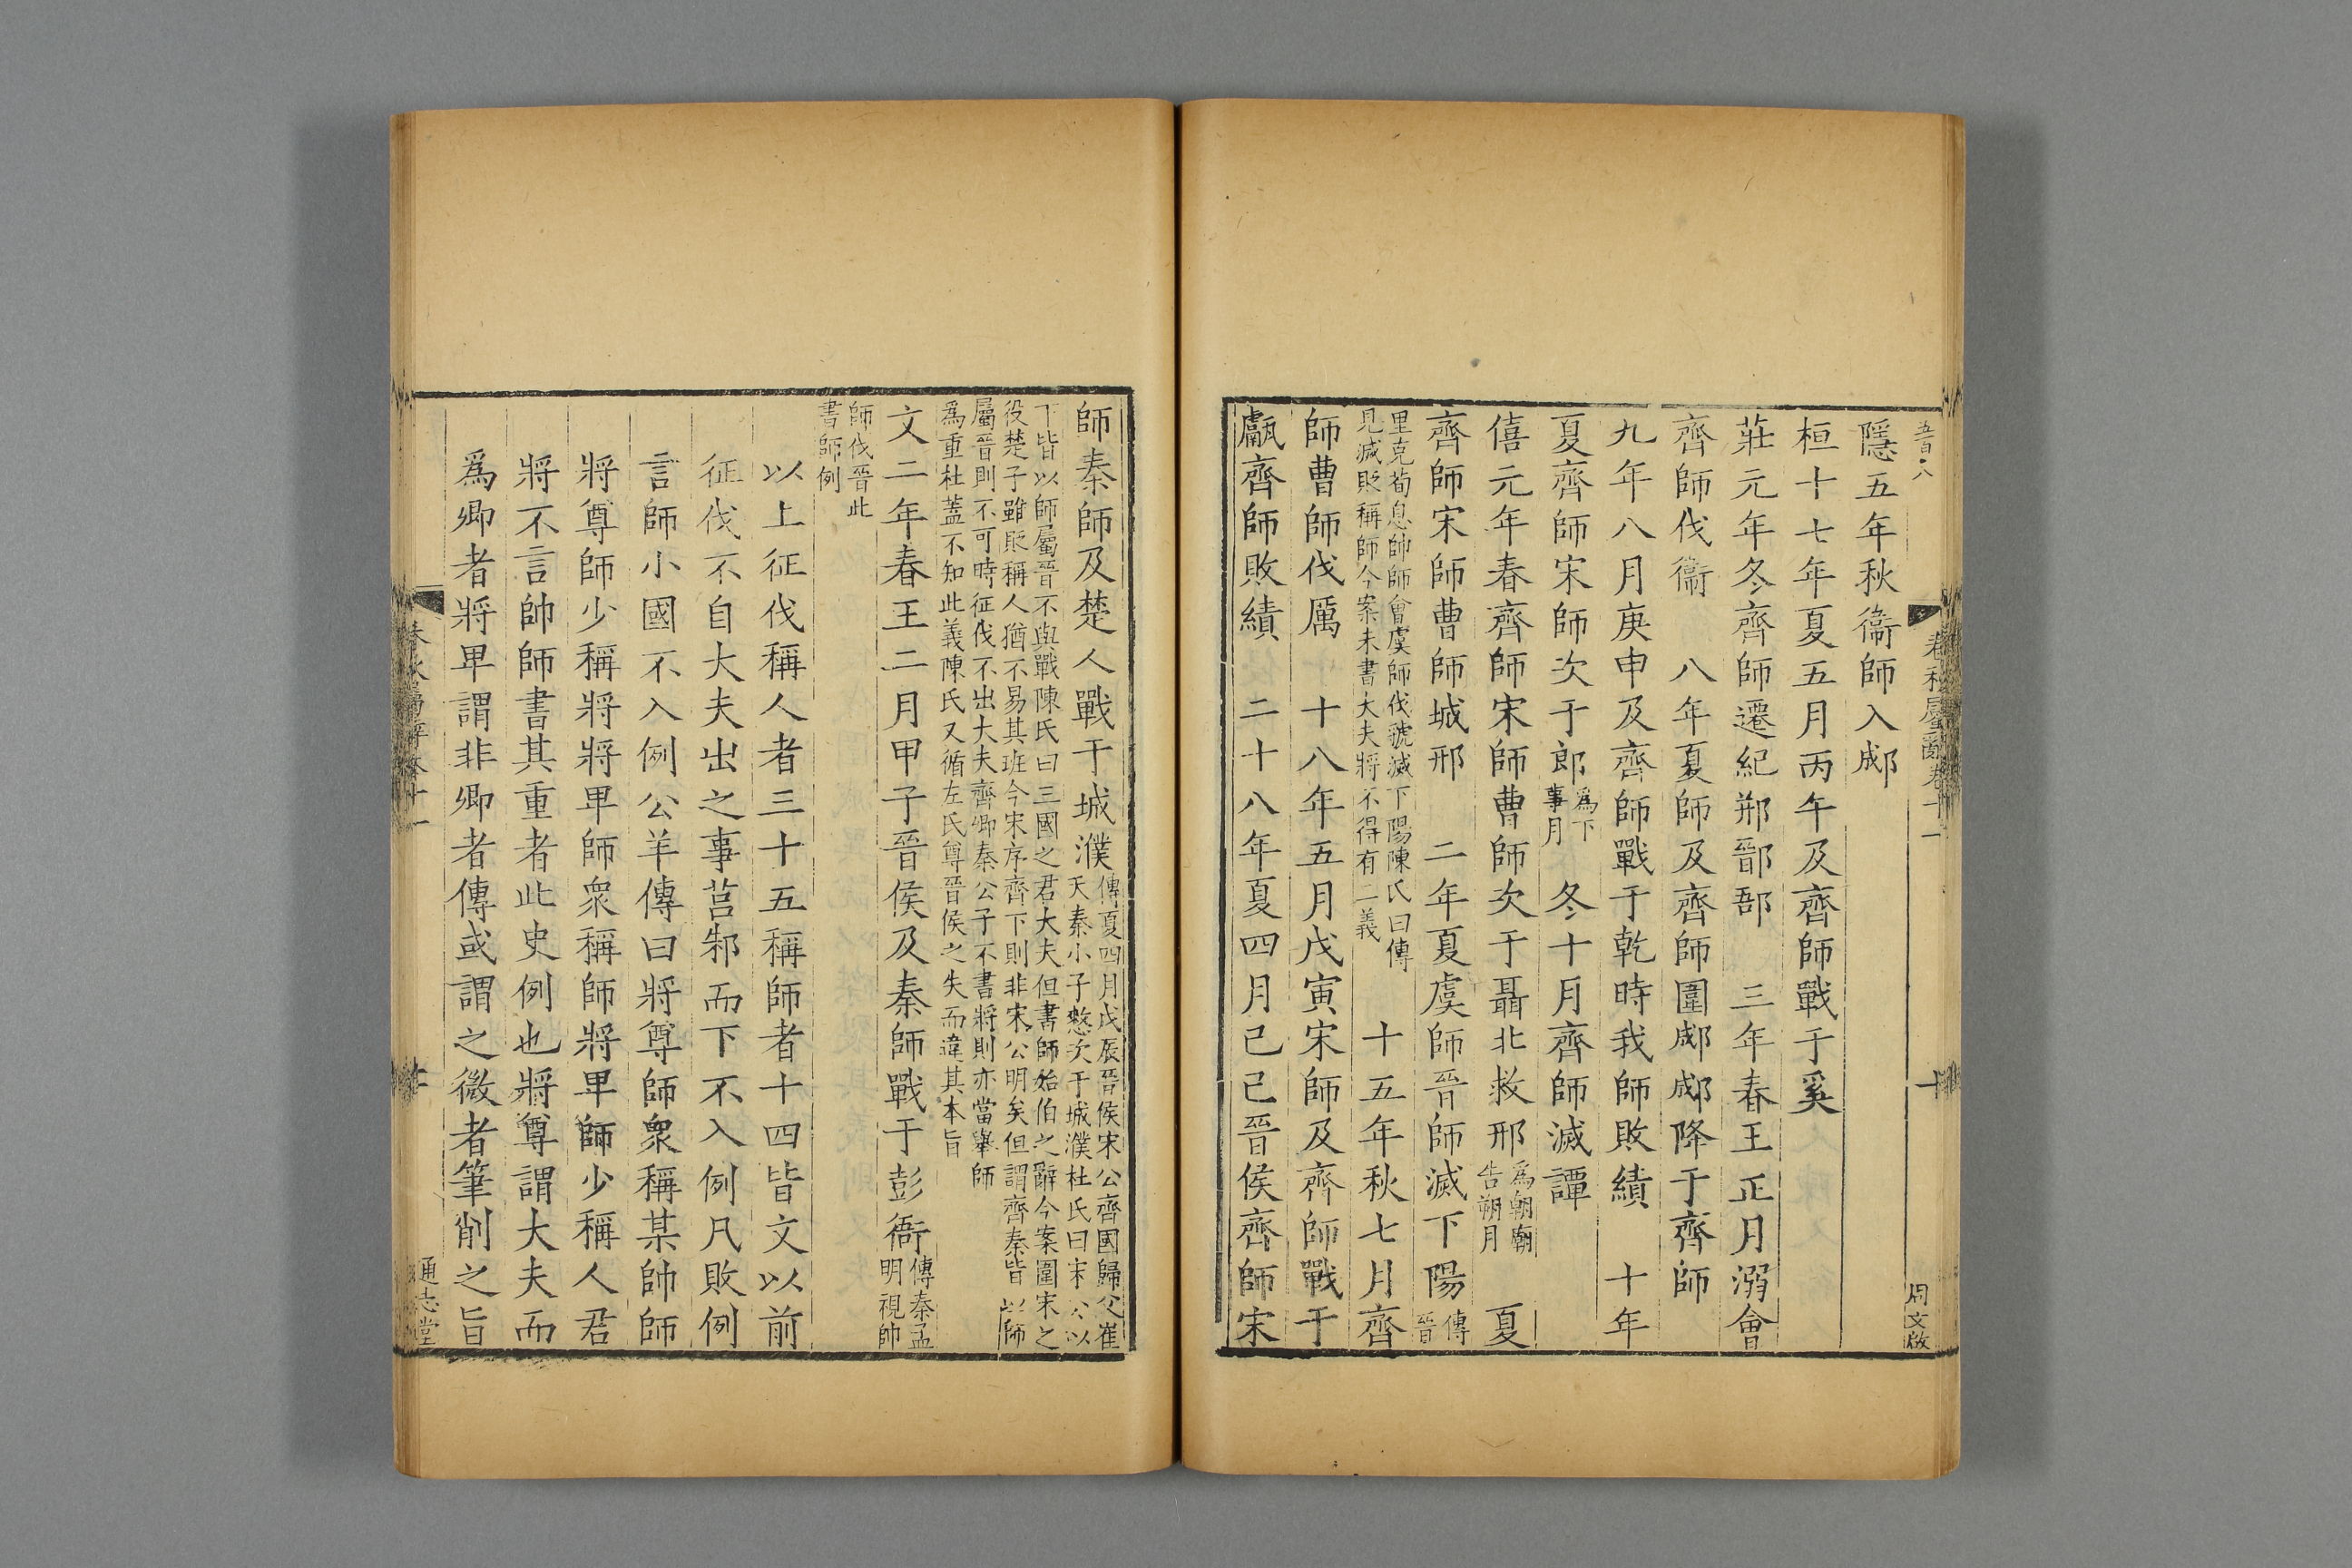 五百八
春秋屬辭卷十一
十
周文啟
隱五年秋衞師入郕
桓十七年夏五月丙午及齊師戰于奚
莊元年冬齊師遷紀郱鄑郚　三年春王正月溺會
齊師伐衞　八年夏師及齊師圍郕郕降于齊師
九年八月庚申及齊師戰于乾時我師敗績　十年
夏齊師宋師次于郎為下事月　冬十月齊師滅譚
僖元年春齊師宋師曹師次于聶北救邢為朝廟告朔月　夏
齊師宋師曹師城邢　二年夏虞師晉師滅下陽傳晉
里克荀息帥師會虞師伐虢滅下陽陳氏曰傳
見滅敗稱師今案未書大夫將不得有二義　十五年秋七月齊
師曹師伐厲　十八年五月戊寅宋師及齊師戰于
甗齊師敗績　二十八年夏四月己巳晉侯齊師宋
師秦師及楚人戰于城濮傳夏四月戊辰晉侯宋公齊國歸父崔
夭秦小子憖次于城濮杜氏曰宋公以
下皆以師屬晉不與戰陳氏曰三國之君大夫但書師始伯之辭今案圍宋之
役楚子雖貶稱人猶不易其班今宋序齊下則非宋公明矣但謂齊秦皆以師
屬晉則不可時征伐不出大夫齊卿秦公子不書將則亦當舉師
為重杜蓋不知此義陳氏又循左氏尊晉侯之失而違其本旨
文二年春王二月甲子晉侯及秦師戰于彭衙傳秦孟明視帥
師伐晉此
書師例
以上征伐稱人者三十五稱師者十四皆文以前
征伐不自大夫出之事莒邾而下不入例凡敗例
言師小國不入例公羊傳曰將尊師衆稱某帥師
將尊師少稱將將卑師衆稱師將卑師少稱人君
將不言帥師書其重者此史例也將尊謂大夫而
爲卿者將卑謂非卿者傳或謂之微者筆削之旨
春秋屬辭卷十一
十
通志堂